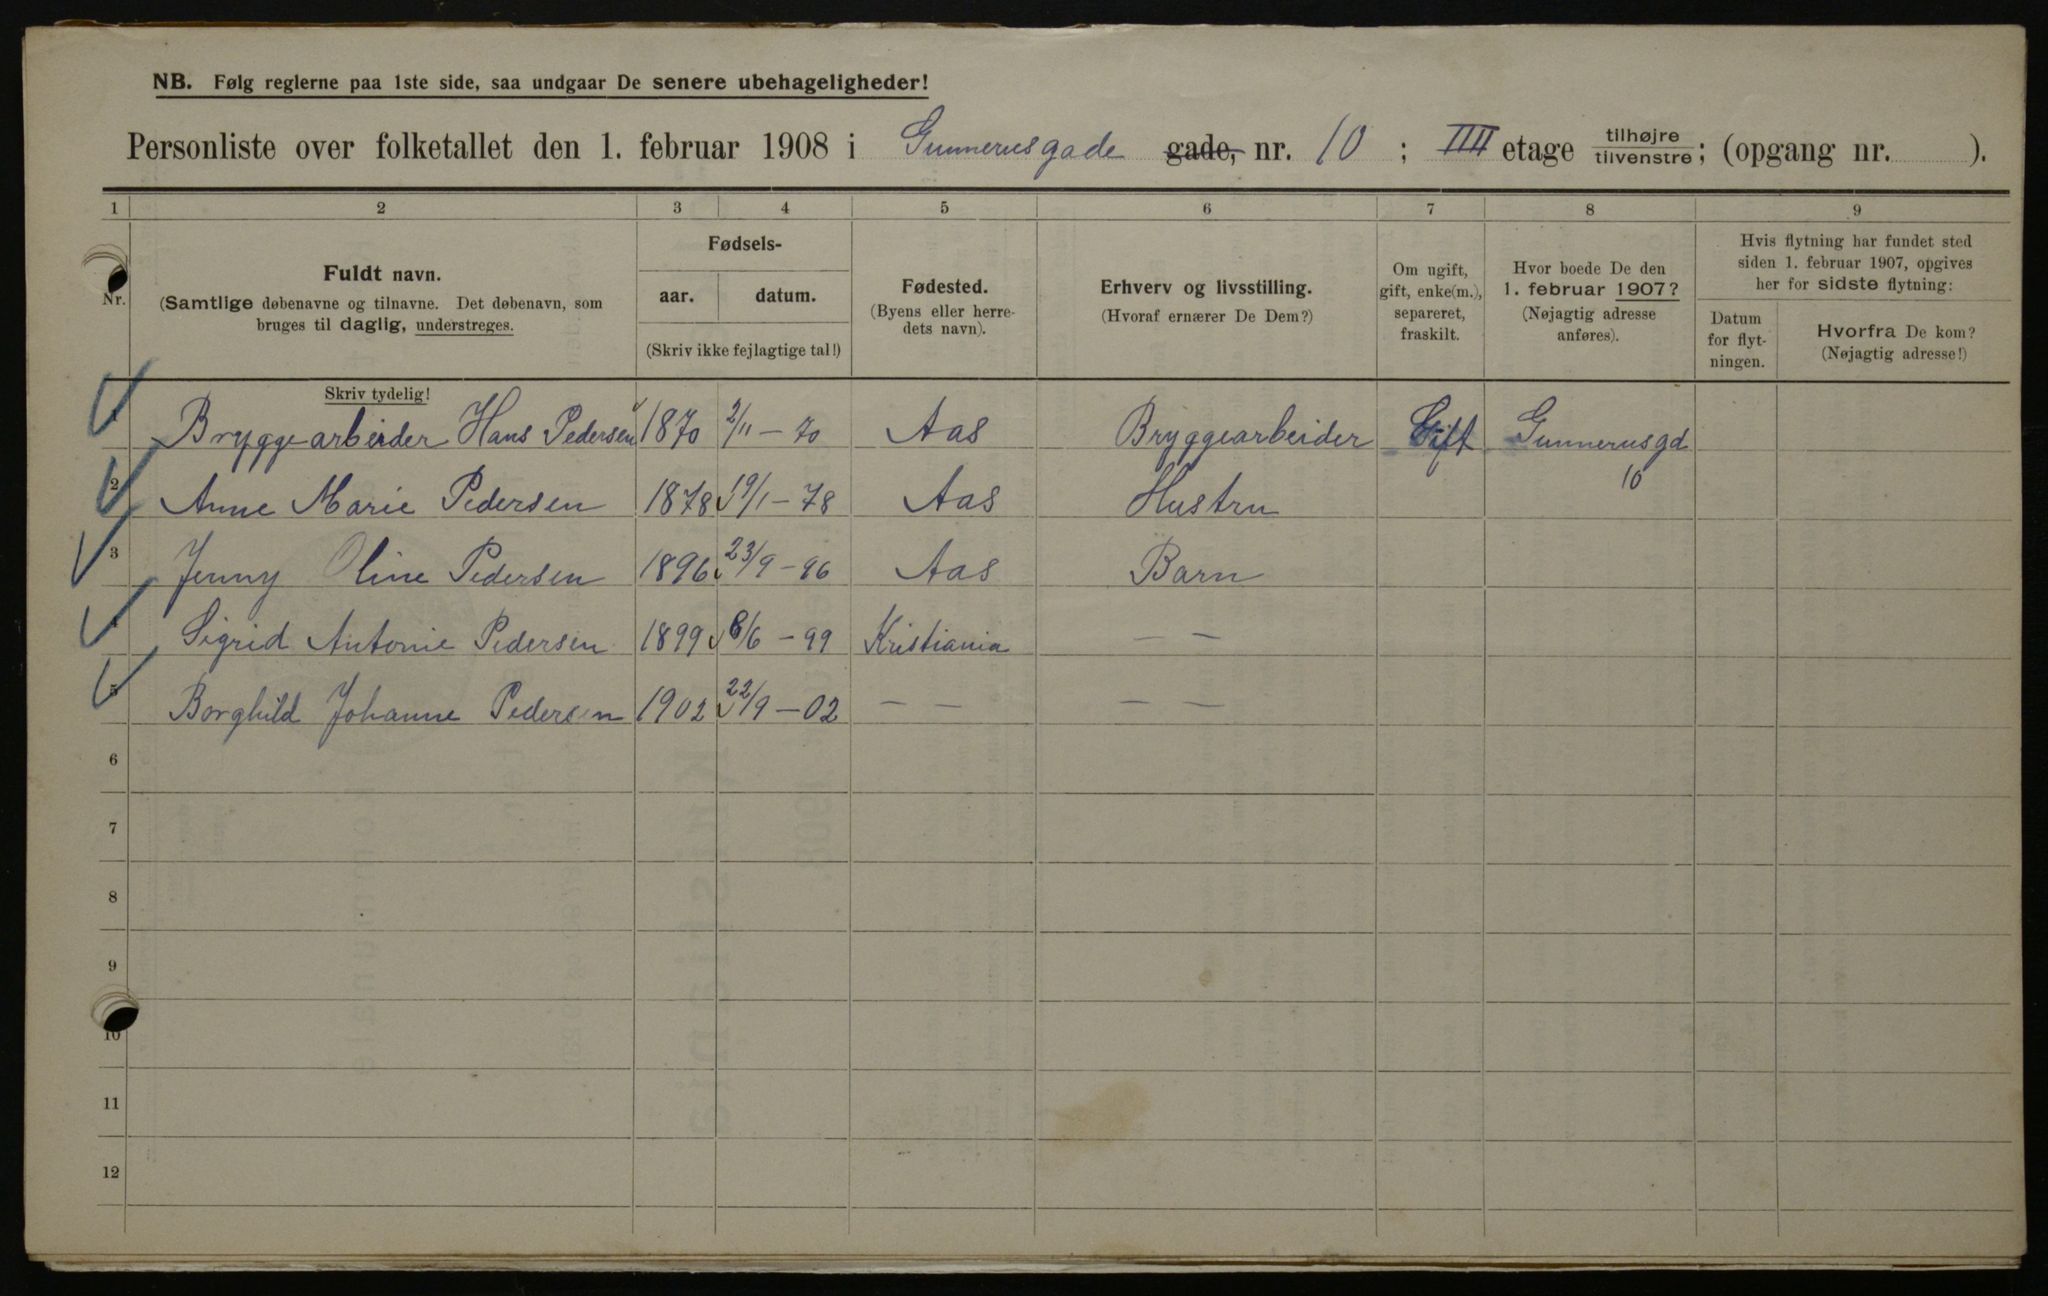 NB. Følg reglerne paa 1ste side, saa undgaar De senere ubehageligheder!
Personliste over folketallet den 1. februar 1908 i Gunnerusgade gade, nr. 10 ; IIII etage tilhøjre tilvenstre ; (opgang nr. ).
1 2 3 4 5 6 7 8 9
Nr.
Fuldt navn.
(Samtlige døbenavne og tilnavne. Det døbenavn, som
bruges til daglig, understreges.
Fødsels-
aar. datum.
(Skriv ikke fejlagtige tal!)
Fødested.
(Byens eller herre-
dets navn).
Erhverv og livsstilling.
(Hvoraf ernærer De Dem?)
Om ugift,
gift, enke(m.),
separeret,
fraskilt.
Hvor boede De den
1. februar 1907?
(Nøjagtig adresse
anføres).
Hvis flytning har fundet sted
siden 1. februar 1907, opgives
her for sidste flytning:
Datum
for flyt-
ningen.
Hvorfra De kom?
(Nøjagtig adresse!)
Skriv tydelig!
1 Bryggearbeider Hans Pedersen 1870 2/11 - 70 Aas Bryggearbeider Gift Gunnerusgd
10
2 Anne Marie Pedersen 1878 19/1 - 78 Aas Hustru
3 Jenny Oline Pedersen 1896 23/9 - 96 Aas Barn
4 Sigrid Antonie Pedersen 1899 8/6 - 99 Kristiania — —
5 Borghild Johanne Pedersen 1902 22/9 - 02 — — — —
6
7
8
9
10
11
12